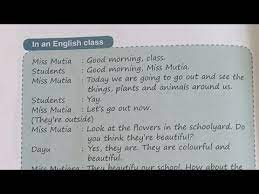 In an English class
Miss Mutia : Good morning, class.
Students : Good morning, Miss Mutia.
Miss Mutia : Today we are going to go out and see the
things, plants and animals around us.
Students : Yay.
Miss Mutia : Let's go out now.
(They're outside)
Miss Mutia : Look at the flowers in the schoolyard. Do
you think they're beautiful?
Dayu : Yes, they are. They are colourful and
beautiful.
Miss Mutia : They beautify our school. How about the